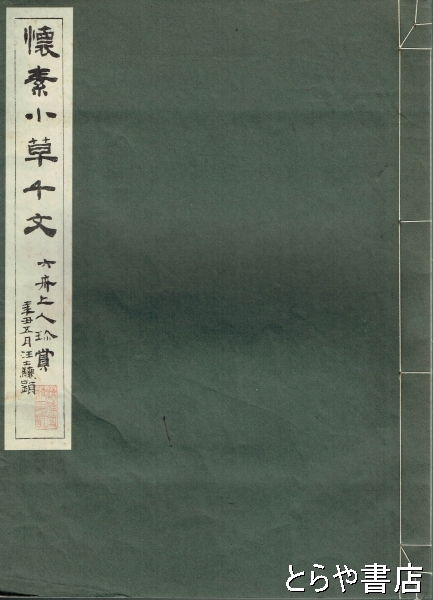 懷素小草千文
六舟上人珍賞
辛丑五月汪士驤題
とらや書店